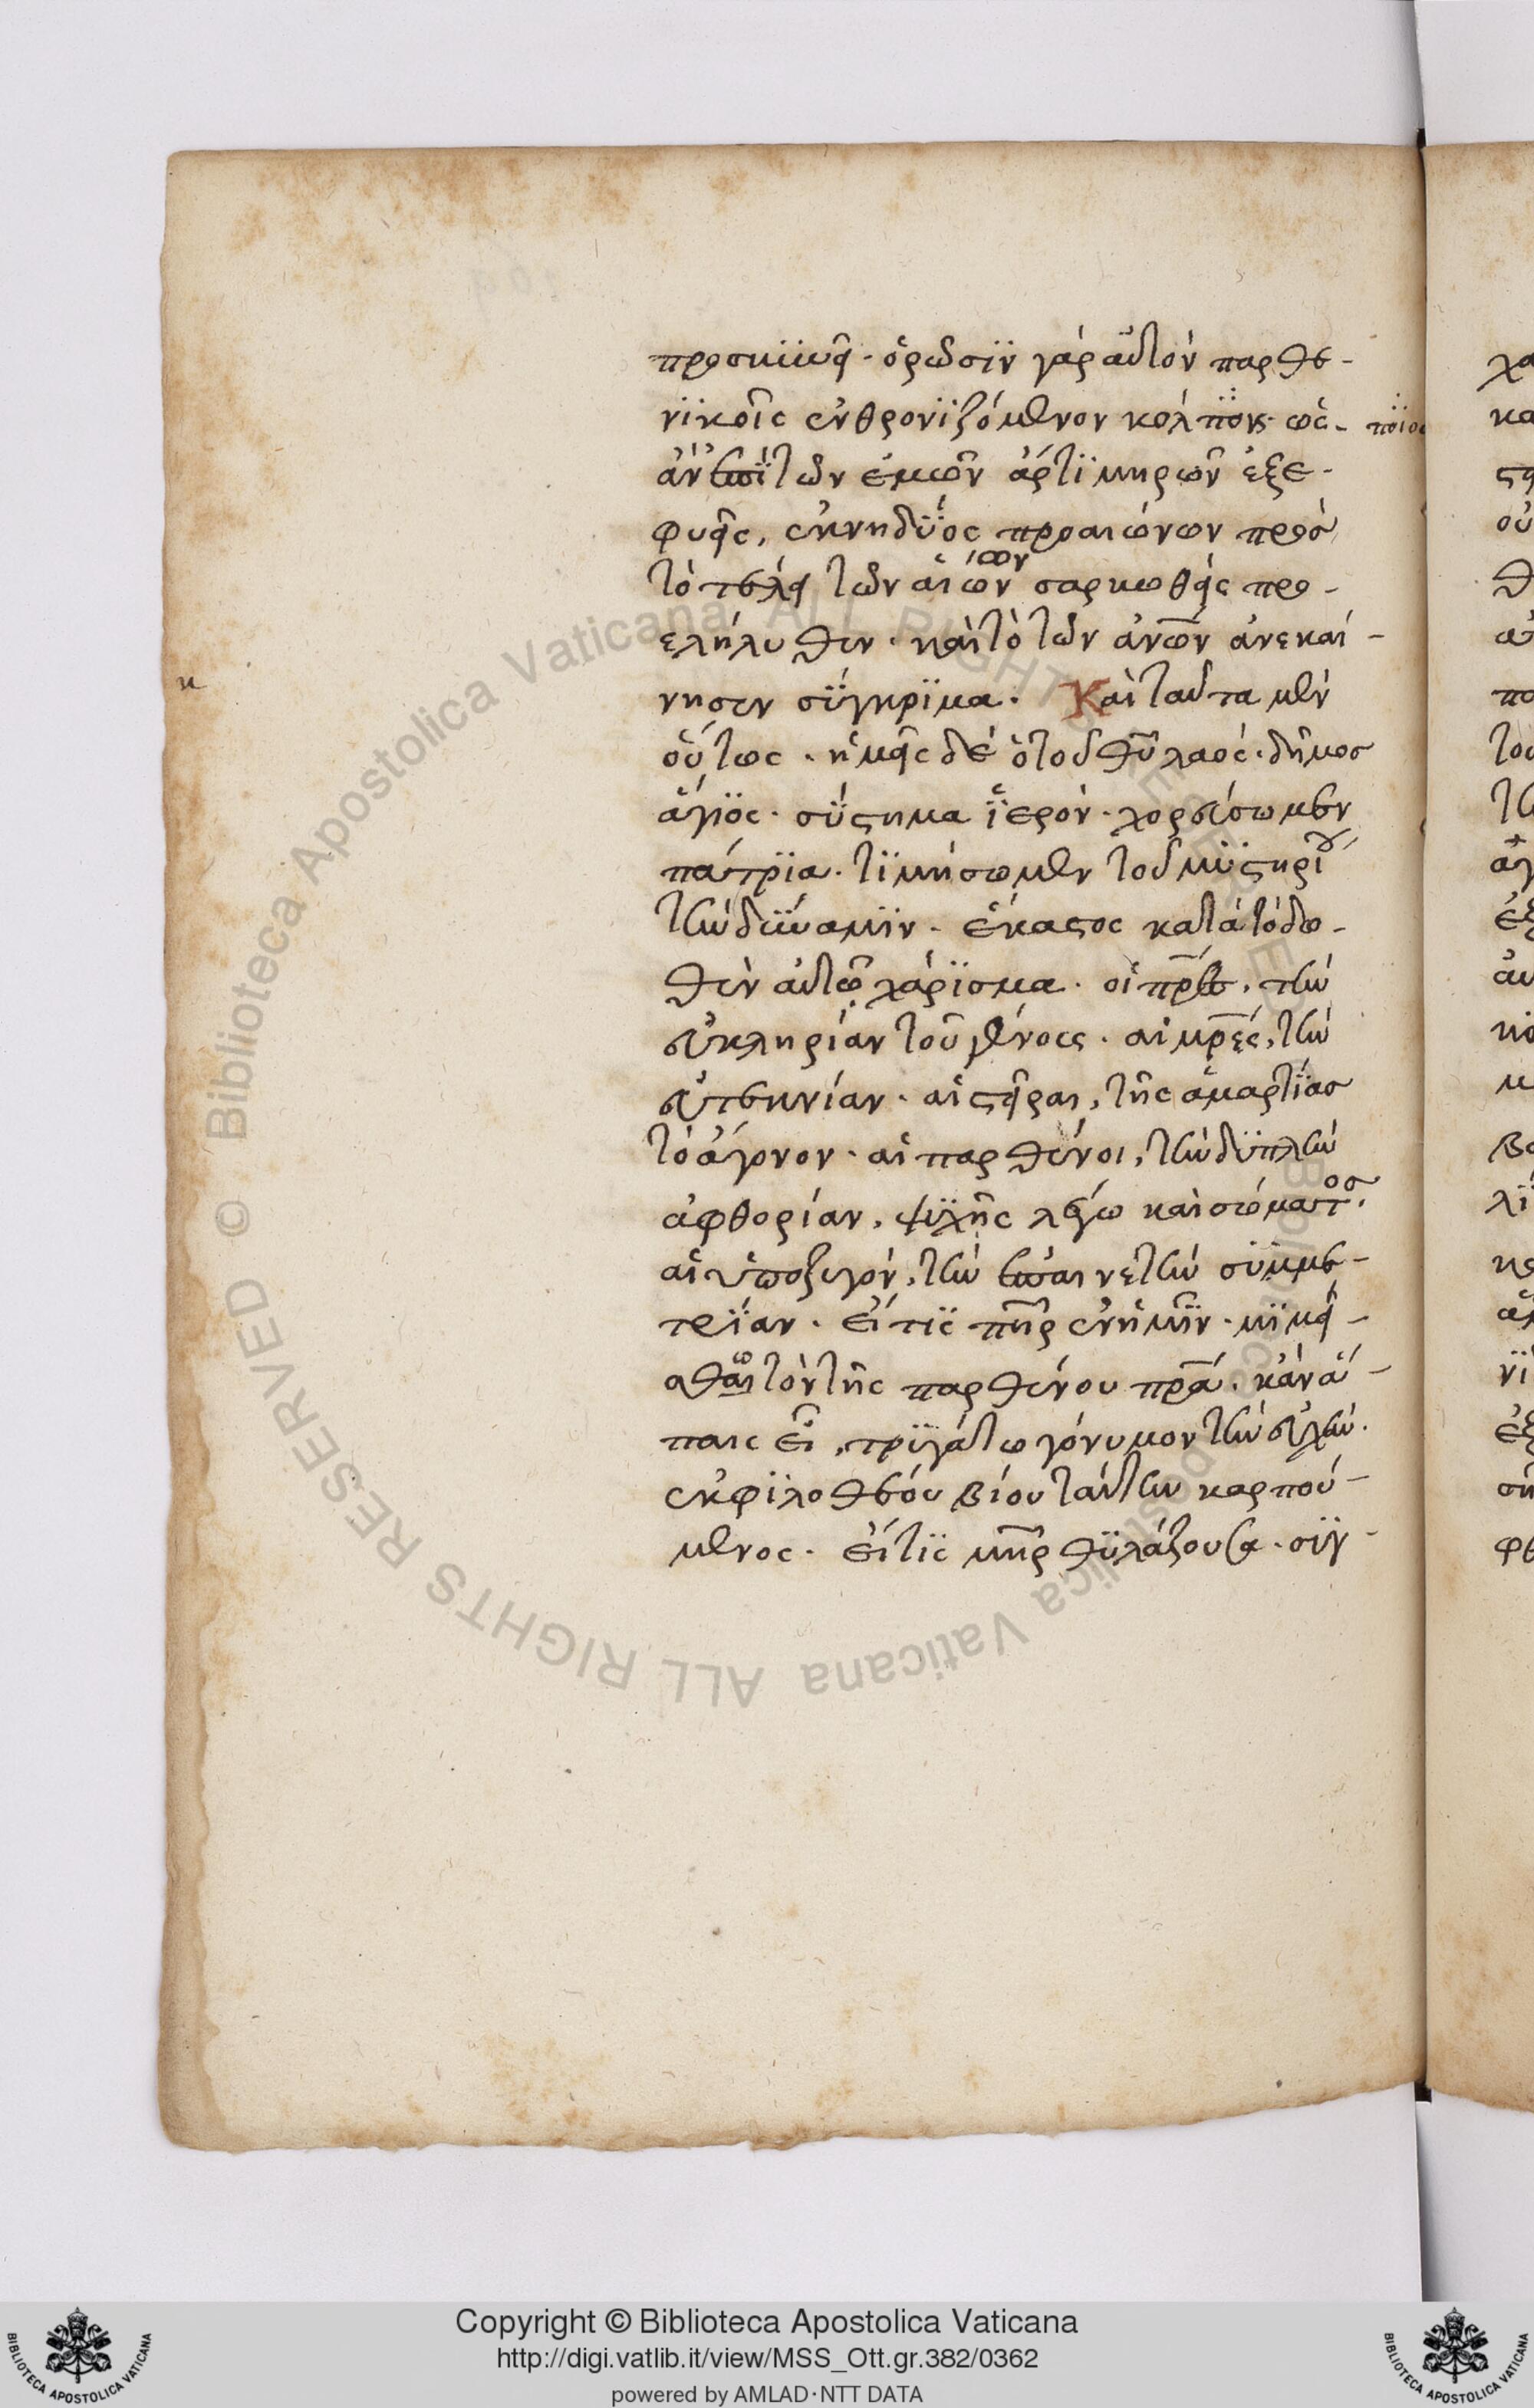 προσκϋνεῖ· ὁρῶσϊν γὰρ αὐτὸν παρθε-
νϊκοῖς ἐνθρονϊζόμενον κόλποις· ὡς-
ἂν ἐπὶ τῶν ἐμῶν ἄρτϊ μηρῶν ἐξε-
φυεῖς, ἐκ νηδϋός προαιώνων πρὸσ
τὸ τέλει τῶν αἰώνων σαρκωθεὶς προ-
ελήλυθεν· καὶ τὸ τῶν ἀνῶν ἀνεκαί-
νησεν σϋγκρϊμα. Καὶ ταῦτα μὲν
οὕτως· ἡμεῖς δὲ ὁ τοῦ θῦ λαός· δῆμοσ
ἅγϊος· σϋστημα ϊερόν· χορεύσωμεν
πάτρϊα. τϊμήσωμεν τοῦ μϋστηρίου
τὴν δϋναμϊν· ἕκαστος κατὰ τὸ δο-
θὲν αὐτῷ χάρϊσμα· οἱ πρες, τὴν
εὐκληρίαν τοῦ γένους· αἱ μρες, τὴν
εὐτεκνίαν· αἱ στεῖραι, τῆς ἁμαρτϊασ
τὸ ἄγονον· αἱ παρθένοι, τὴν δϋπλὴν
ἀφθορίαν, ψϋχῆς λέγω καὶ σώματοσ.
αἱ ὑποζυγόν, τὴν ἐπαινετὴν συμμε-
τρϊαν· εἴ τις πηρ ἐν ἡμῖν· μϊμεί-
σθω τὸν τῆς παρθένου πρα· κἂν ἄ-
παις εἶ, τρϋγάτω γόνυμον τὴν εὐχὴν.
ἐκ φϊλοθέου βίου ταύτην καρπού-
μενος· εἴ τϊς μηρ θϋλάζουσα· σϋγ-